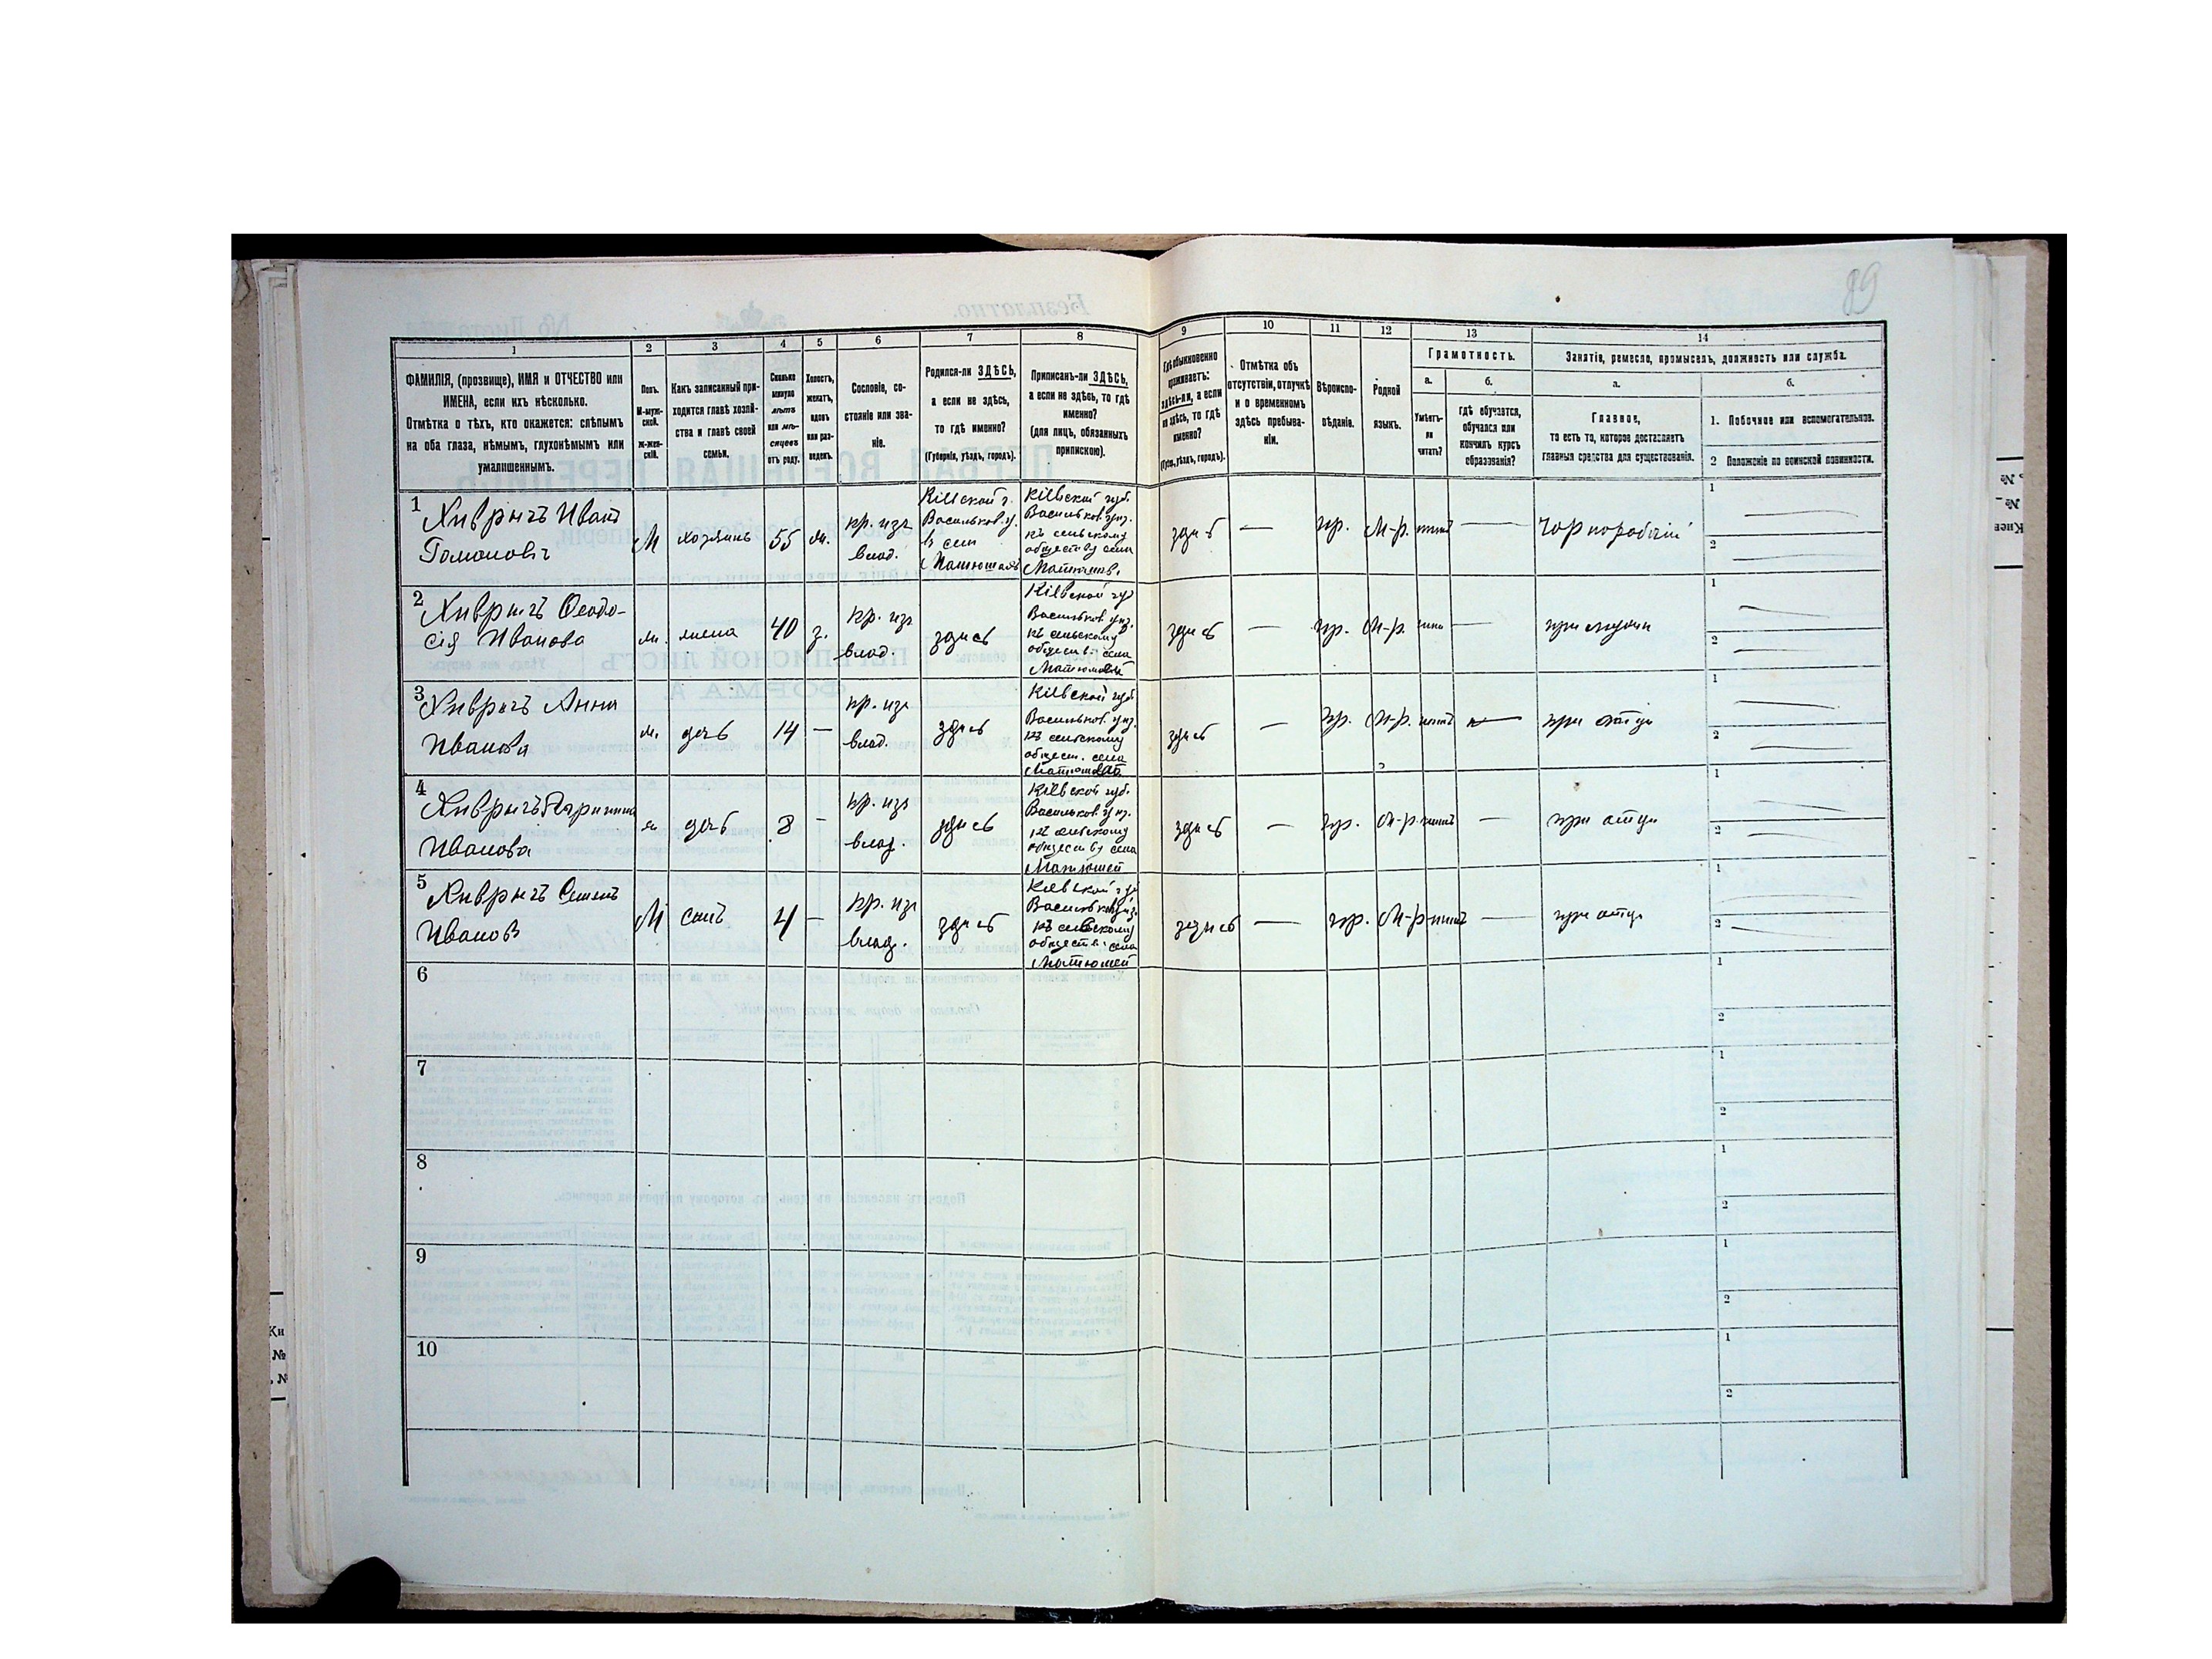 89
1 2 3 4 5 6 7 8 9 10 11 12 13 14
ФАМИЛІЯ, (прозвище), ИМЯ и ОТЧЕСТВО или
ИМЕНА, если ихъ нѣсколько.
Отмѣтка о тѣхъ, кто окажется: слѣпымъ
на оба глаза, нѣмымъ, глухонѣмымъ или
умалишеннымъ.
Полъ.
М-муж-
ской.
ж-жен-
скій.
Какъ записанный при-
ходится главѣ хозяй-
ства и главѣ своей
семьи.
Сколько
минуло
лѣтъ
или мѣ-
сяцевъ
отъ роду.
Холостъ,
женатъ,
вдовъ
или раз-
веденъ.
Сословіе, со-
стояніе или зва-
ніе.
Родился-ли ЗДѢСЬ,
а если не здѣсь,
то гдѣ именно?
(Губернія, уѣздъ, городъ).
Приписанъ-ли ЗДѢСЬ,
а если не здѣсь, то гдѣ
именно?
(для лицъ, обязанныхъ
припискою).
Гдѣ обыкновенно
проживаетъ:
здѣсь-ли, а если
не здѣсь, то гдѣ
именно?
(Губ., уѣздъ, городъ).
Отмѣтка объ
отсутствіи, отлучкѣ
и о временномъ
здѣсь пребыва-
ніи.
Вѣроиспо-
вѣданіе.
Родной
языкъ.
Грамотность.
а.
Умѣетъ-
ли
читать?
б.
гдѣ обучается,
обучался или
кончилъ курсъ
образованія?
Занятія, ремесло, промыселъ, должность или служба.
а.
Главное,
то есть то, которое доставляетъ
главныя средства для существованія.
б.
1. Побочное или вспомогательное.
2 Положеніе по воинской повинности.
1
Хивричъ Иванъ
М хозяинъ 55 ж.
кр. изъ
влад.
Кіевской г.
Васильков. у.
в сел
Матюшахъ
Кіевской губ.
Васильков. уѣз.
къ сельскому
обществу села
Матюшъ
здись — пр. М-р. нитъ — чорноробочій
1
2
2
Хивричъ Феодо-
сія Иванова
ж. жена 40 з.
кр. изъ
влад.
здись
Кіевской губ
Васильков. уѣз.
къ сельскому
обществ. села
здись — пр. М-р. — при мужи
1
2
3
Хивричъ Анна
Иванова
ж. дочь 14 —
кр. изъ
влад.
здись
Кіевской губ.
Васильков. уѣз.
къ сельскому
общест. села
здись — пр. М-р. нитъ — при отци
1
2
4
Хивричъ
Иванова
ж дочь 8 —
кр. изъ
влад.
здись
Кіевской губ.
Васильков. уѣз.
къ сельскому
обществу села
Матюшей
здись — пр. М-р. нитъ — при отци
1
2
5
Хивричъ Семенъ
Ивановъ
М сынъ 4 —
кр. изъ
влад.
здись
Кіевской губ
Васильков уѣз.
къ сельскому
обществ. села
Матюшей
здись — пр. М-р нитъ — при отци
1
2
6
1
2
7
1
2
8
1
2
9
1
2
10
1
2